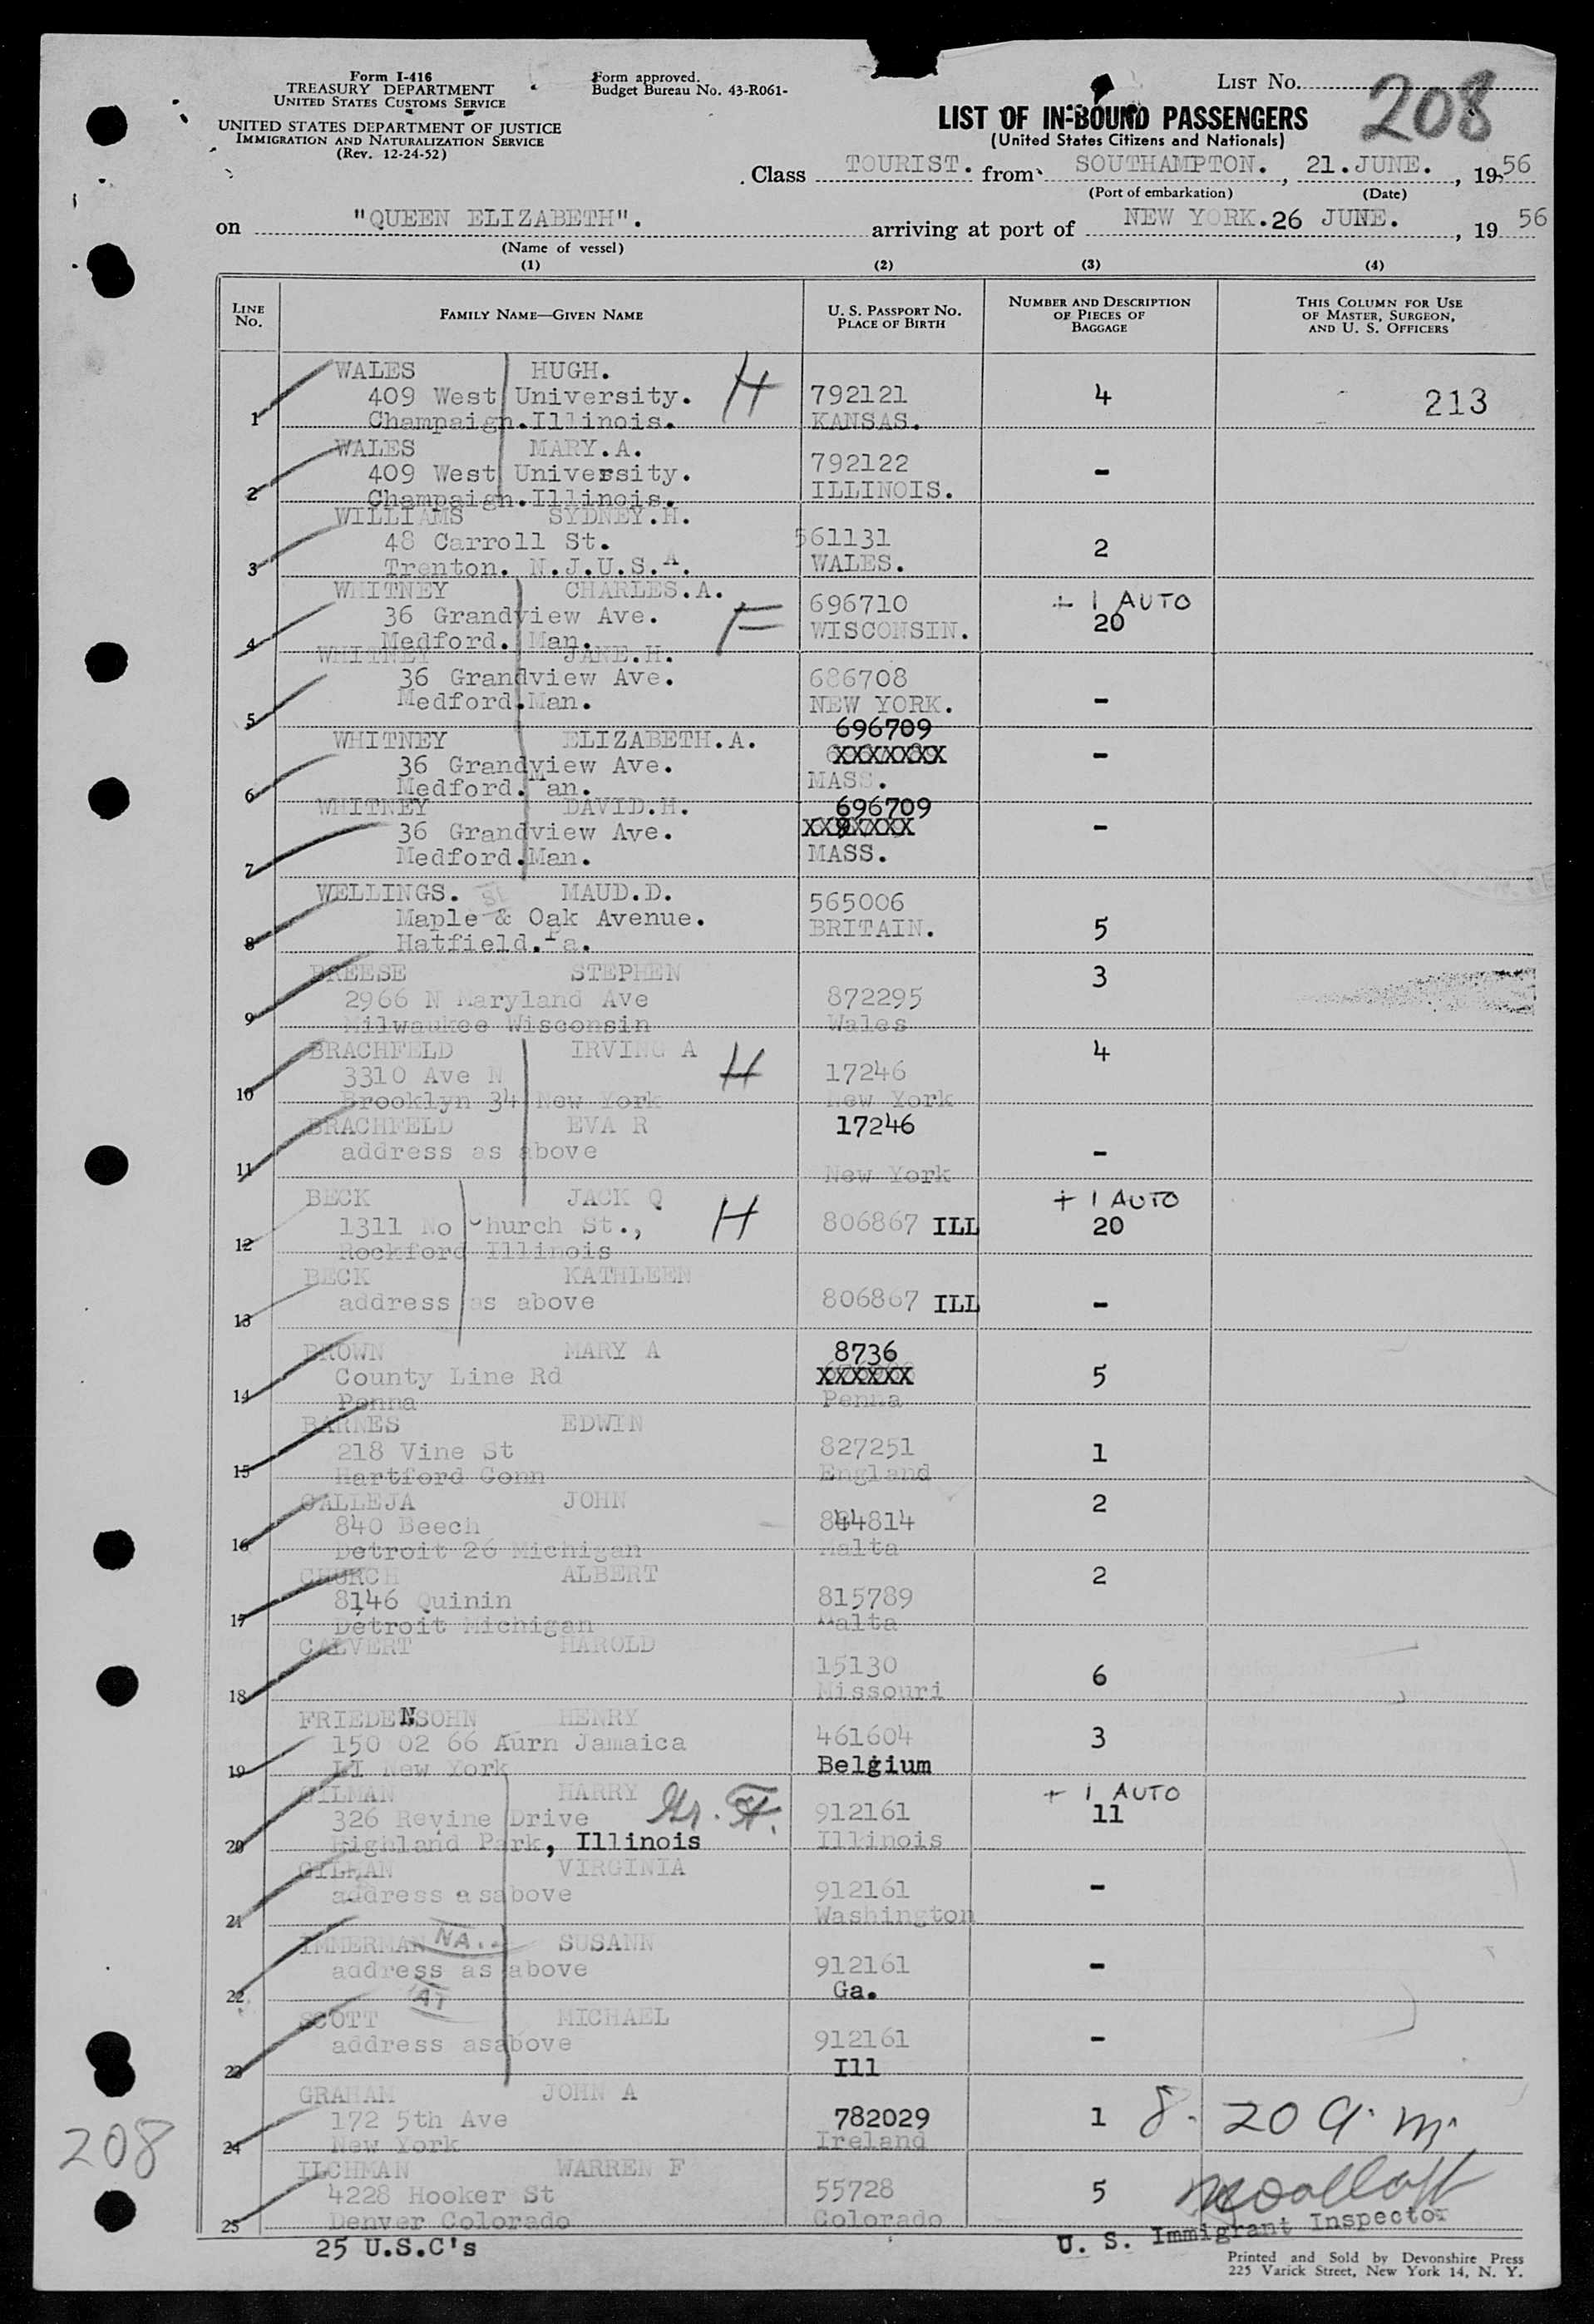 Form I-416
TREASURY DEPARTMENT
UNITED STATES CUSTOMS SERVICE
UNITED STATES DEPARTMENT OF JUSTICE
IMMIGRATION AND NATURALIZATION SERVICE
(Rev. 12-24-52)
Form approved.
Budget Bureau No. 43-R061-
LIST NO. 208
LIST OF IN-BOUND PASSENGERS
(United States Citizens and Nationals)
Class TOURIST. from SOUTHAMPTON. , 21.JUNE. , 1956
(Port of embarkation) (Date)
on "QUEEN ELIZABETH". arriving at port of NEW YORK.26 JUNE. , 19 56
(Name of vessel)
(1) (2) (3) (4)
LINE No. FAMILY NAME—GIVEN NAME U. S. PASSPORT NO. PLACE OF BIRTH NUMBER AND DESCRIPTION OF PIECES OF BAGGAGE THIS COLUMN FOR USE OF MASTER, SURGEON, AND U. S. OFFICERS
WALES HUGH. H
409 West University. 792121 4 213
1 Champaign.Illinois. KANSAS.
WALES MARY.A.
409 West University. 792122 -
2 Champaign.Illinois. ILLINOIS.
WILLIAMS SYDNEY.H.
48 Carroll St. 561131 2
3 Trenton. N.J.U.S.A. WALES.
WHITNEY CHARLES.A. + 1 AUTO
36 Grandview Ave. F 696710 20
4 Medford. Man. WISCONSIN.
WHITNEY JANE.H.
36 Grandview Ave. 686708 -
5 Medford.Man. NEW YORK.
696709
WHITNEY ELIZABETH.A. XXXXXXX -
36 Grandview Ave.
6 Medford.Man. MASS.
WHITNEY DAVID.H. 696709
36 Grandview Ave. XXXXXXX -
7 Medford.Man. MASS.
WELLINGS. MAUD.D.
Maple & Oak Avenue. 565006 5
8 Hatfield.Pa. BRITAIN.
BREESE STEPHEN 3
2966 N Maryland Ave 872295
9 Milwaukee Wisconsin Wales
BRACHFELD IRVING A H 4
3310 Ave N 17246
10 Brooklyn 34 New York New York
BRACHFELD EVA R 17246
address as above -
11 New York
BECK JACK Q + 1 AUTO
1311 No Church St., H 806867 ILL 20
12 Rockford Illinois
BECK KATHLEEN
address as above 806867 ILL -
13
BROWN MARY A 8736
County Line Rd XXXXXX 5
14 Penna Penna
BARNES EDWIN
218 Vine St 827251 1
15 Hartford Conn England
CALLEJA JOHN 2
840 Beech 844814
16 Detroit 26 Michigan Malta
CHURCH ALBERT 2
8146 Quinin 815789
17 Detroit Michigan Malta
CALVERT HAROLD
15130 6
18 Missouri
FRIEDENSOHN HENRY
150 02 66 Aurn Jamaica 461604 3
19 LI New York Belgium
GILMAN HARRY + 1 AUTO
326 Revine Drive 912161 11
20 Highland Park, Illinois Illinois
GILMAN VIRGINIA
address a sabove 912161 -
21 Washington
IMMERMAN NA.. SUSANN
address as above 912161 -
22 Ga.
SCOTT MICHAEL
address asabove 912161 -
23 Ill
GRAHAM JOHN A
172 5th Ave 782029 1 8. 20 a.m.
24 New York Ireland
ILCHMAN WARREN F
4228 Hooker St 55728 5
25 Denver Colorado Colorado
25 U.S.C's
U. S. Immigrant Inspector
208
Printed and Sold by Devonshire Press
225 Varick Street, New York 14, N. Y.